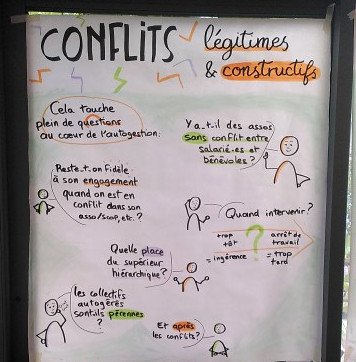 CONFLITS légitimes
& constructifs
Cela touche
plein de questions
au cœur de l'autogestion:
Y a-t-il des assos
sans conflit entre
salarié-es et
bénévoles ?
Reste-t-on Fidèle
à son engagement
quand on est en
conflit dans son
asso/scop, etc. ?
Quand intervenir ?
trop
tôt
= ingérence
?
arrêt de
travail
= trop
tard
Quelle place
du supérieur
hiérarchique ?
les collectifs
autogérés
sont ils pérennes
?
Et après
les conflits ?